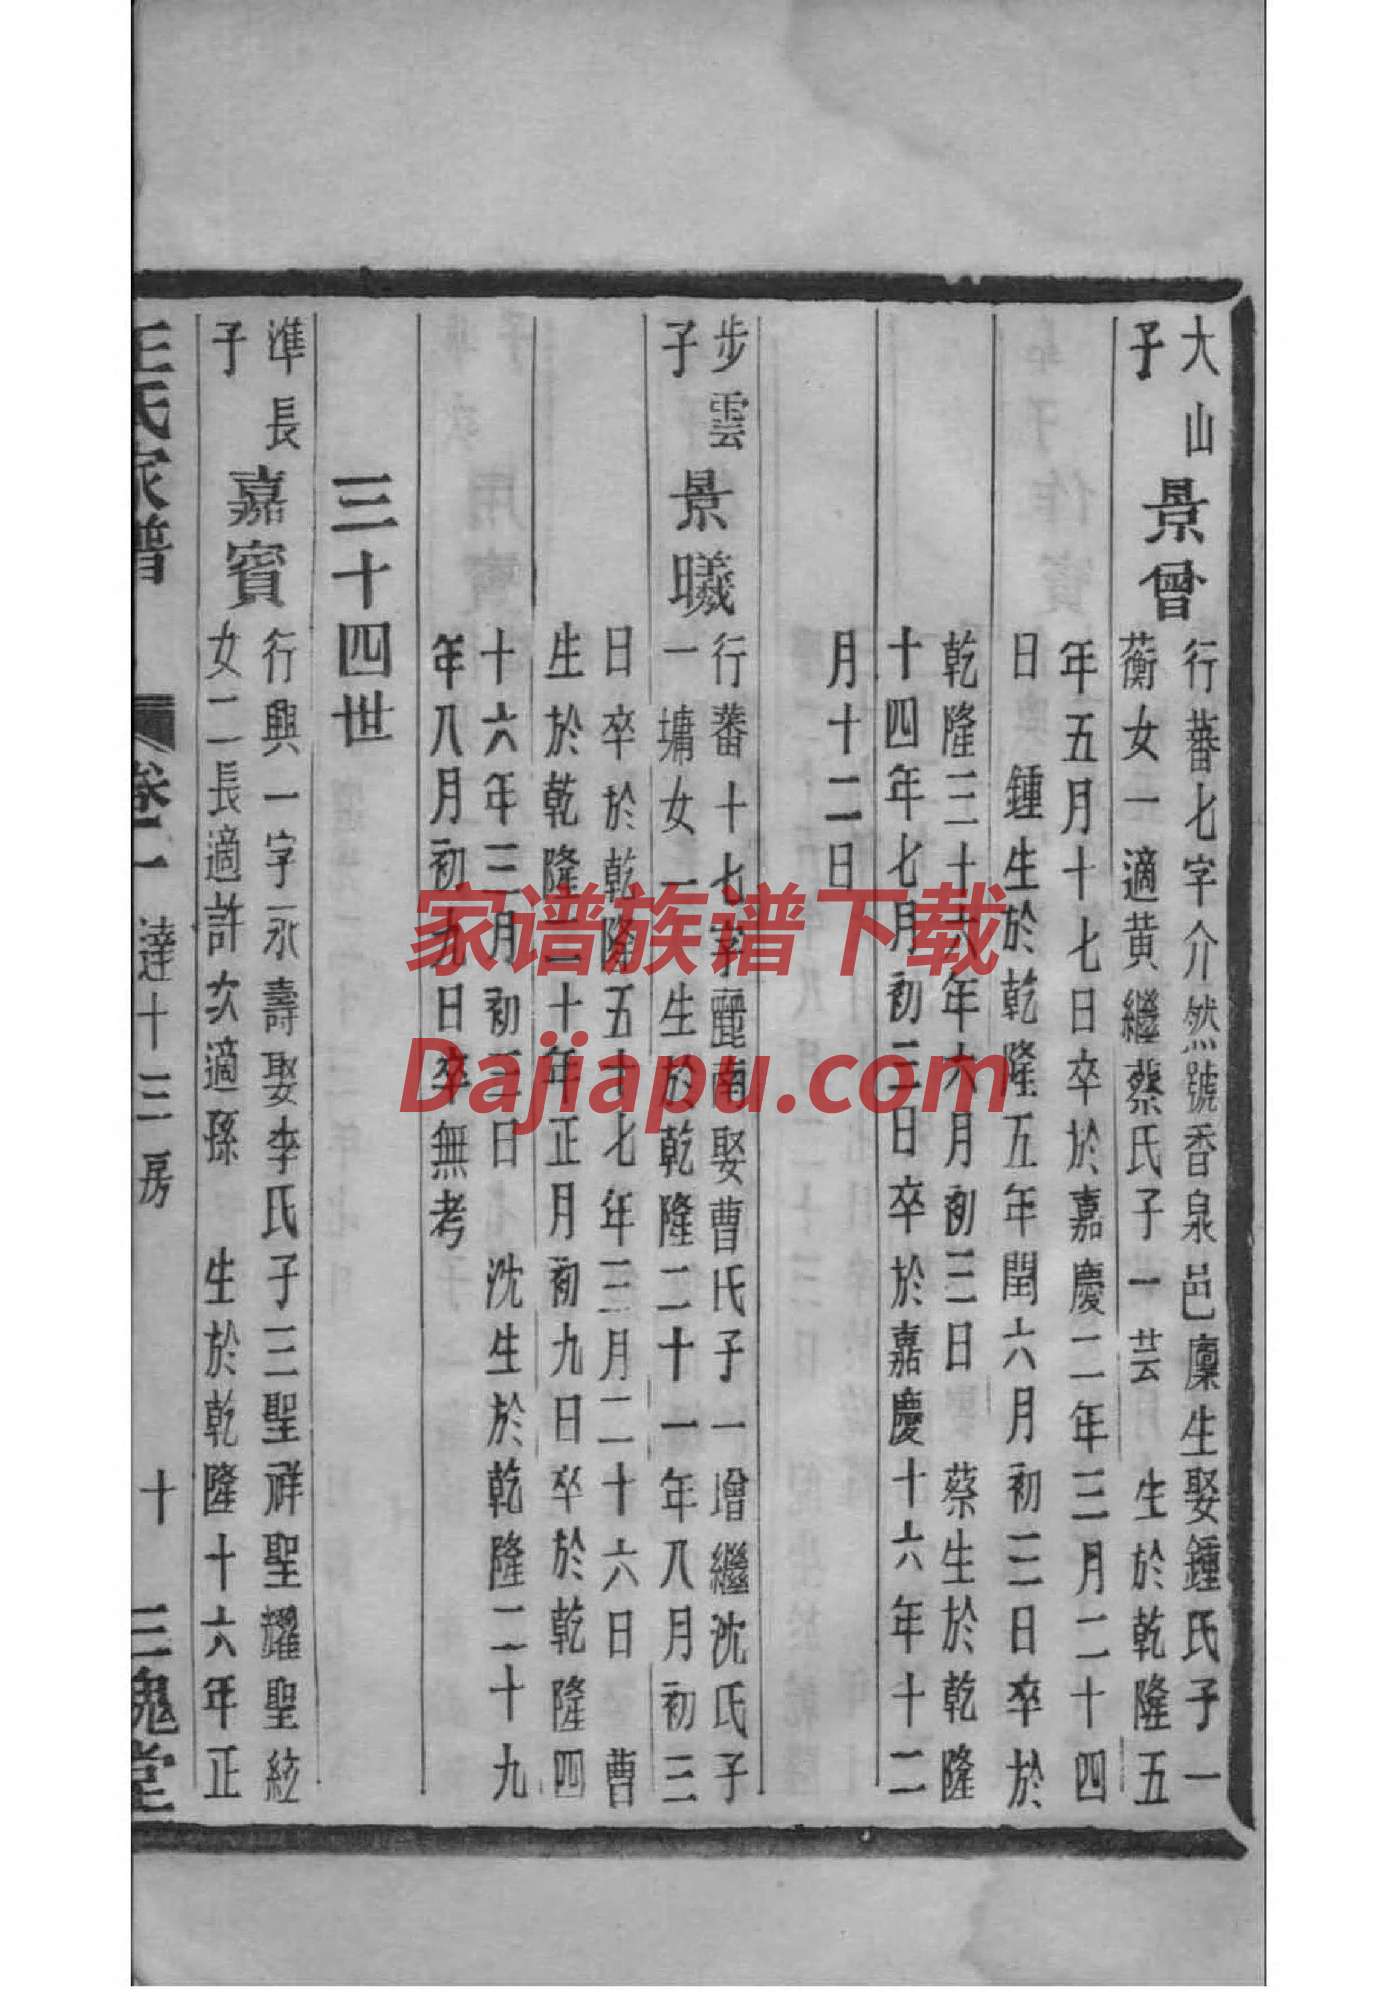 大山子
景曾
行蕃七字介然號香泉邑廩生娶鍾氏子一
蘅女一適黄繼蔡氏子一芸 生於乾隆五
年五月十七日卒於嘉慶二年三月二十四
日 鍾生於乾隆五年閏六月初三日卒於
乾隆三十六年六月初三日 蔡生於乾隆
十四年七月初三日卒於嘉慶十六年十二
月十二日
步雲子
景曦
行蕃十七字麗南娶曹氏子一增繼沈氏子
一墉女一 生於乾隆二十一年八月初三
日卒於乾隆五十七年三月二十六日 曹
生於乾隆二十年正月初九日卒於乾隆四
十六年三月初三日 沈生於乾隆二十九
年八月初九日卒無考
三十四世
準長子
嘉賓
行興一字永壽娶李氏子三聖祥聖耀聖絃
女二長適許次適孫 生於乾隆十六年正
王氏家譜 卷二 達十三房 十 三槐堂
家谱族谱下载
Dajiapu.com